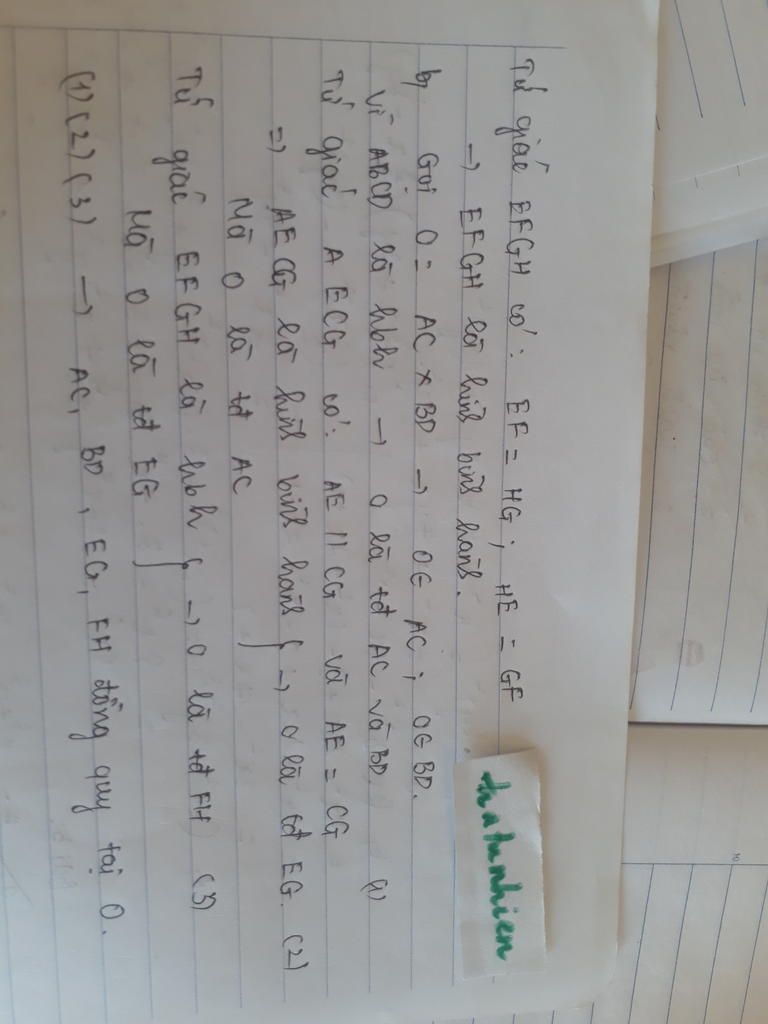 Tứ giác EFGH có: EF = HG; HE = GF
→ EFGH là hình bình hành.
b, Gọi O = AC × BD → O∈ AC; O∈ BD.
Vì ABCD là hbh → O là tđ AC và BD. (1)
Tứ giác AECG có: AE // CG và AE = CG
=> AECG là hình bình hành } → O là tđ EG. (2)
Mà O là tđ AC
Tứ giác EFGH là hbh } → O là tđ FH (3)
Mà O là tđ EG
(1) (2) (3) → AC, BD, EG, FH đồng quy tại O.
hatunhien